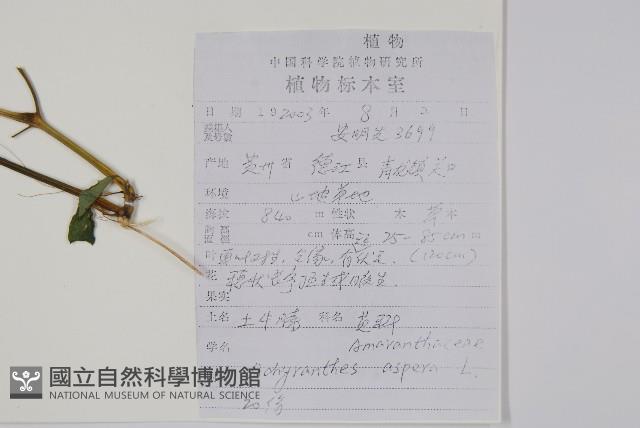 植物
中国科学院植物研究所
植物标本室
日期 19 2003 年 8 月 2 日
采集人及号数 安明先 3699
产地 贵州 省 德江 县 青龙镇
环境 山地草地
海拔 840 m 性状 木 草本
胸高直径 cm 体高 25-85cm m
叶 对生, 全缘, (120cm)
花 穗状 序顶生 腋生.
果实
土名 土牛膝 科名 苋科
学名 Amaranthaceae
Achyranthes aspera L.
20份
國立自然科學博物館
NATIONAL MUSEUM OF NATURAL SCIENCE